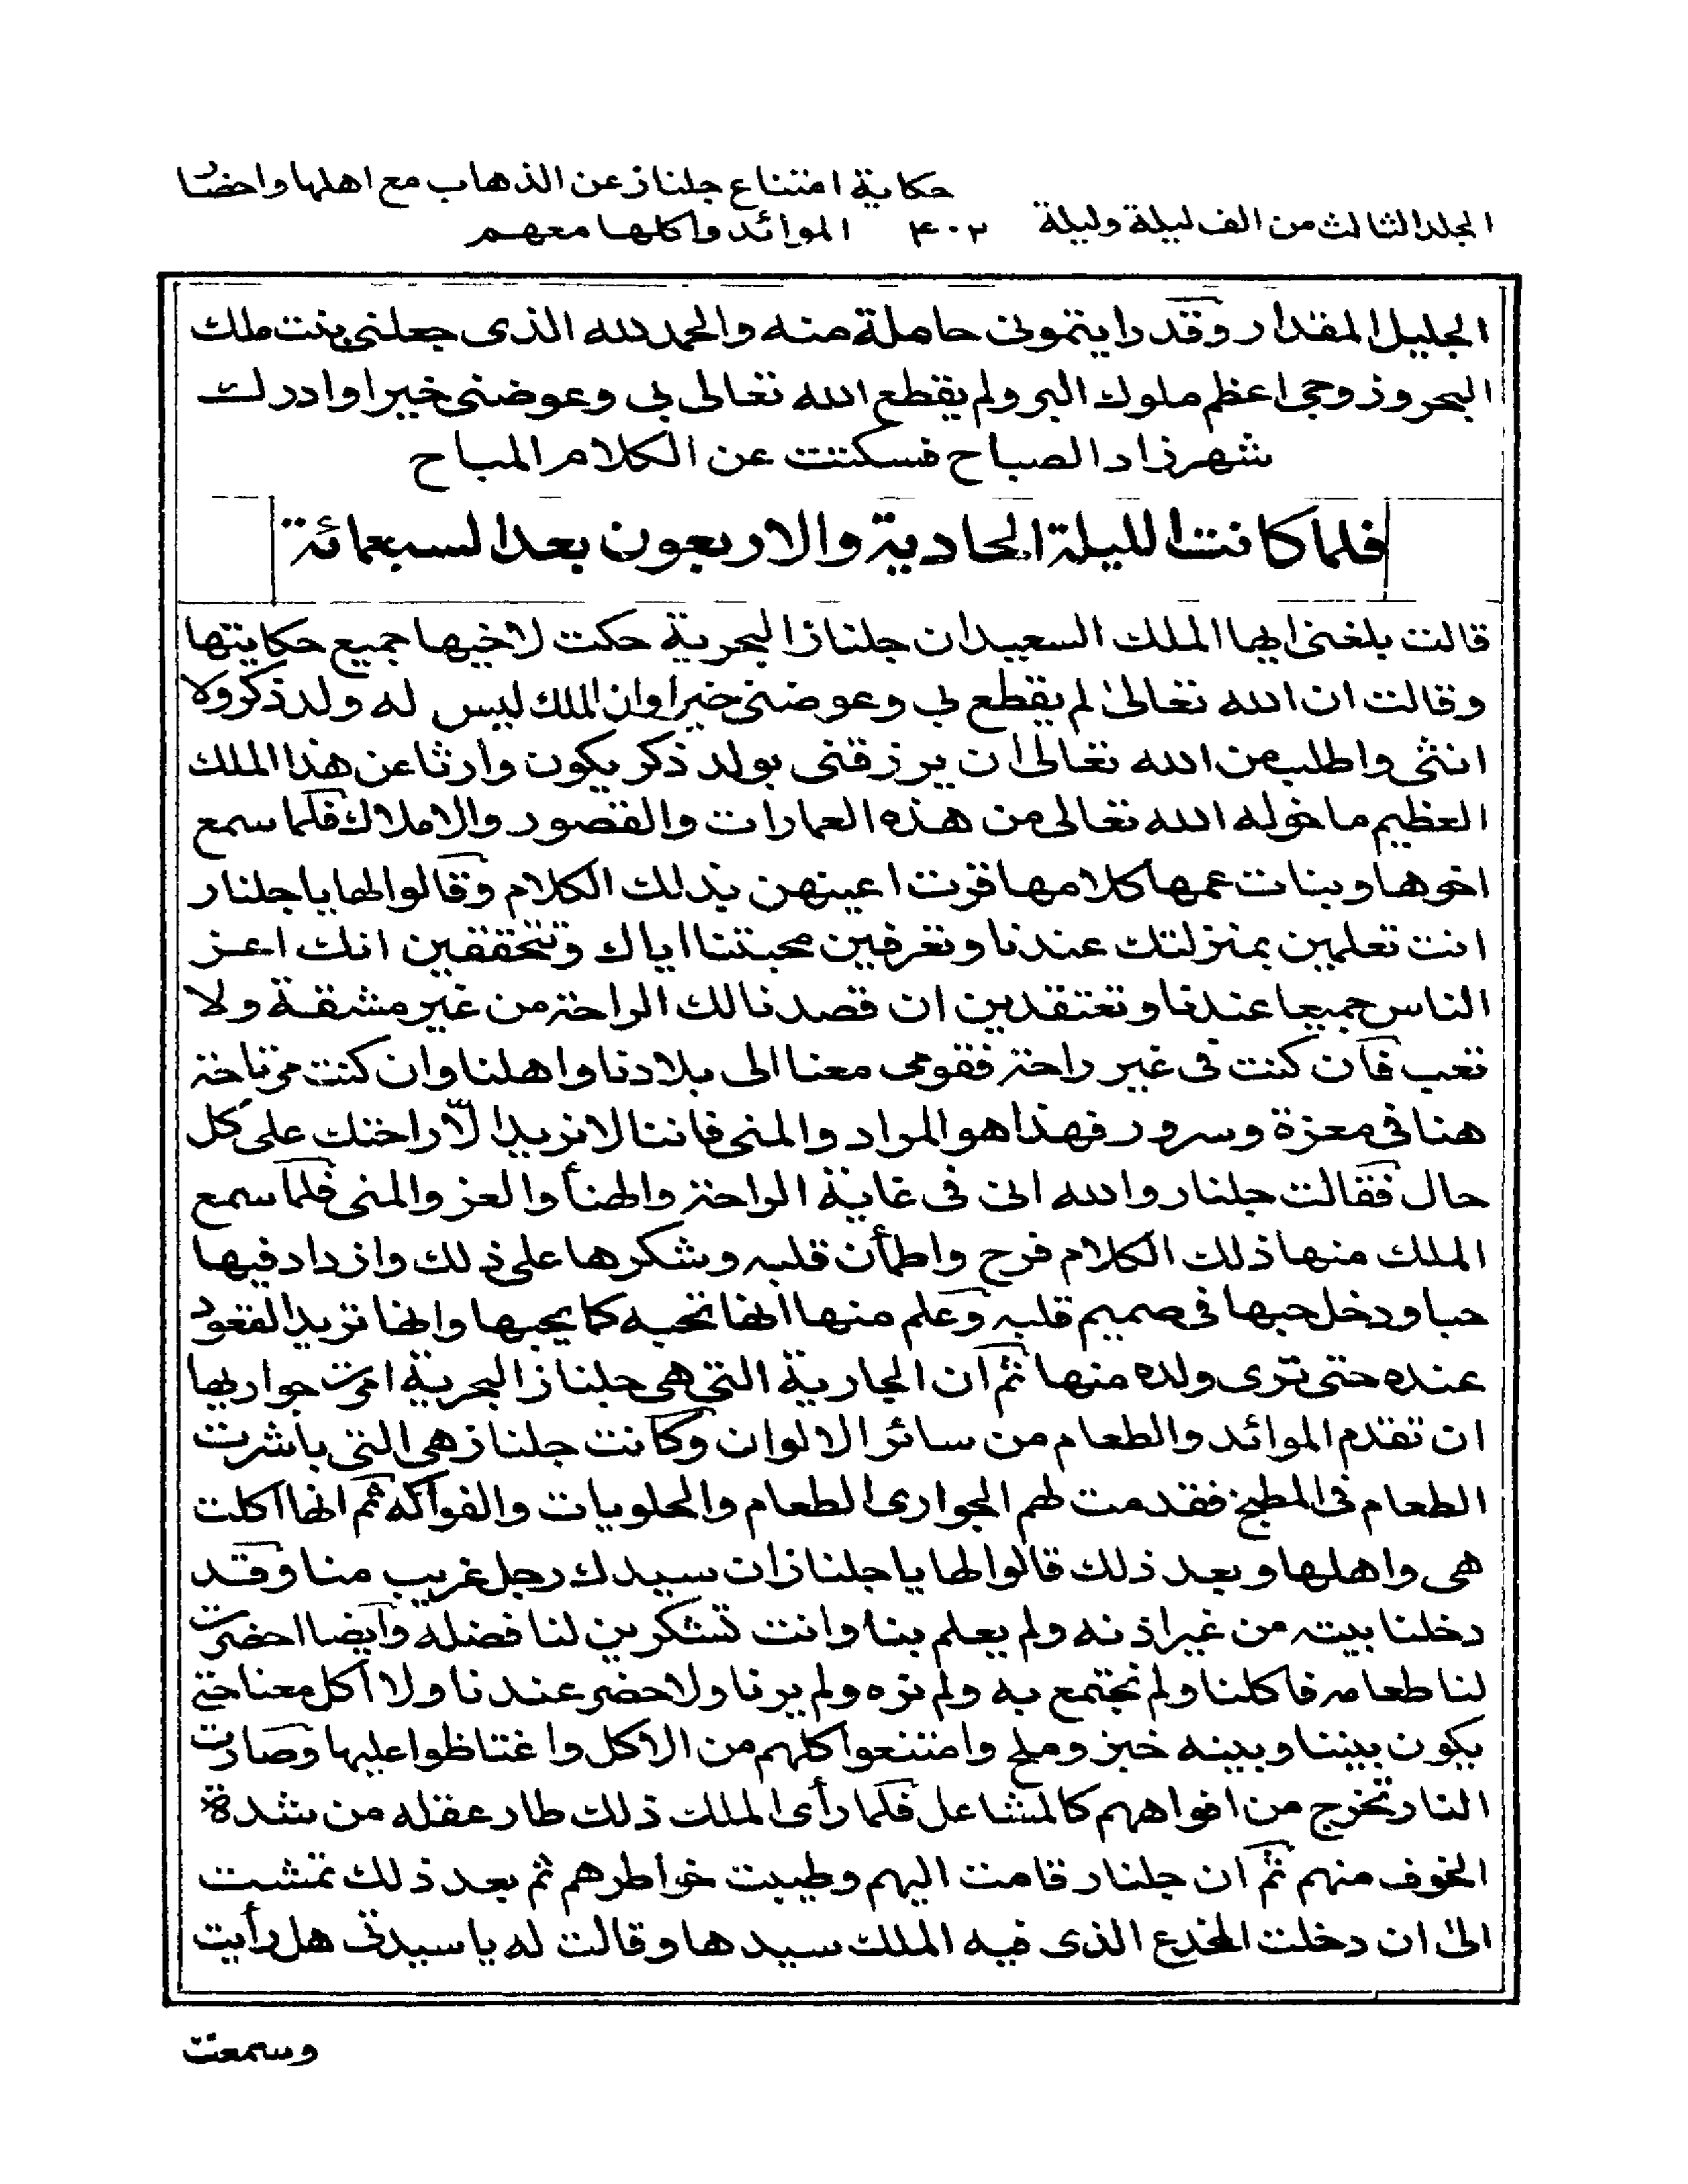 حكاية امتناع جلناز عن الذهاب مع اهلها واحضا
المجلد الثالث من الف ليلة وليلة ٤٠٢ الموائد واكلها معهم
الجليل المقدار وقد رايتمونى حاملة منه والحمد لله الذى جعلنى بنت ملك
البحر وزوجى اعظم ملوك البر ولم يقطع الله تعالى بى وعوضنى خيرا وادرك
شهرزاد الصباح فسكتت عن الكلام المباح
فلما كانت الليلة الحادية والاربعون بعد السبعمائة
قالت بلغنى ايها الملك السعيد ان جلناز البحرية حكت لاخيها جميع حكايتها
وقالت ان الله تعالى لم يقطع بى وعوضنى خيرا وان الملك ليس له ولد ذكر ولا
انثى واطلب من الله تعالى ان يرزقنى بولد ذكر يكون وارثا عن هذا الملك
العظيم ما خوله الله تعالى من هذه العمارات والقصور والاملاك فلما سمع
اخوها وبنات عمها كلامها قرت اعينهن بذلك الكلام وقالوا لها يا جلنار
انت تعلمين بمنزلتك عندنا وتعرفين محبتنا اياك وتتحققين انك اعز
الناس جميعا عندنا وتعتقدين ان قصدنا لك الراحة من غير مشقة ولا
تعب فان كنت فى غير راحة فقومى معنا الى بلادنا واهلنا وان كنت مرتاحة
هنا فى معزة وسرور فهذا هو المراد والمنى فاننا لا نريد الّا راحتك على كل
حال فقالت جلنار والله انى فى غاية الراحة والهنأ والعز والمنى فلما سمع
الملك منها ذلك الكلام فرح واطمأن قلبه وشكرها على ذلك وازداد فيها
حبا ودخل حبها فى صميم قلبه وعلم منها انها تحبه كما يحبها وانها تريد القعود
عنده حتى ترى ولده منها ثم ان الجارية التى هى جلناز البحرية امرت جواريها
ان تقدم الموائد والطعام من سائر الالوان وكانت جلناز هى التى باشرت
الطعام فى المطبخ فقدمت لهم الجوارى الطعام والحلويات والفواكه ثم انها اكلت
هى واهلها وبعد ذلك قالوا لها يا جلناز ان سيدك رجل غريب منا وقد
دخلنا بيته من غير اذنه ولم يعلم بنا وانت تشكرين لنا فضله وايضا احضرت
لنا طعامه فاكلنا ولم نجتمع به ولم نره ولم يرنا ولا حضر عندنا ولا اكل معنا حتى
يكون بيننا وبينه خبز وملح وامتنعوا كلهم من الاكل واغتاظوا عليها وصارت
النار تخرج من افواههم كالمشاعل فلما رأى الملك ذلك طار عقله من شدة
الخوف منهم ثم ان جلنار قامت اليهم وطيبت خواطرهم ثم بعد ذلك تمشت
الى ان دخلت المخدع الذى فيه الملك سيدها وقالت له يا سيدى هل رأيت
وسمعت